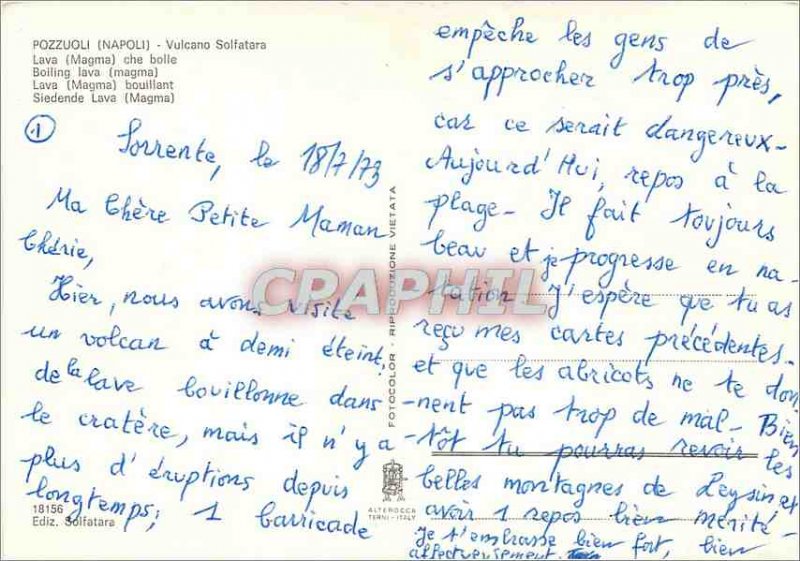 POZZUOLI (NAPOLI) - Vulcano Solfatara
Lava (Magma) che bolle
Boiling lava (magma)
Lava (Magma) bouillant
Siedende Lava (Magma)
1
Sorrente, le 18/7/73
Ma Chère Petite Maman
Chérie,
Hier, nous avons visité
un volcan à demi éteint;
de la lave bouillonne dans
le cratère, mais il n'y a
plus d'éruptions depuis
longtemps; 1 barricade
18156
Ediz. Solfatara
FOTOCOLOR - RIPRODUZIONE VIETATA
CPAPHIL
ALTEROCCA
TERNI - ITALY
empêche les gens de
s'approcher trop près,
car ce serait dangereux-
Aujourd'Hui, repos à la
plage- Il fait toujours
beau et je progresse en na-
tation. J'espère que tu as
reçu mes cartes précédentes-
et que les abricots ne te don-
nent pas trop de mal- Bien
-tôt tu pourras revoir les
belles montagnes de Leysin et
avoir 1 repos bien mérité-
Je t'embrasse bien fort, bien
affectueusement